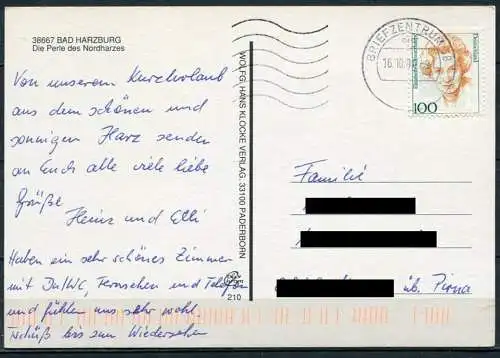 38667 BAD HARZBURG
Die Perle des Nordharzes
Von unserem Kurzurlaub
aus dem schönen und
sonnigen Harz senden
an Euch alle viele liebe
Grüße
Heinz und Elli
Haben ein sehr schönes Zimmer
mit Du/WC, Fernsehen und Telefon
und fühlen uns sehr wohl.
Tschüß bis zum Wiedersehen
WOLFG. HANS KLOCKE VERLAG, 33100 PADERBORN
210
BRIEFZENTRUM 38
16.10.
100
Familie
üb. Pirna